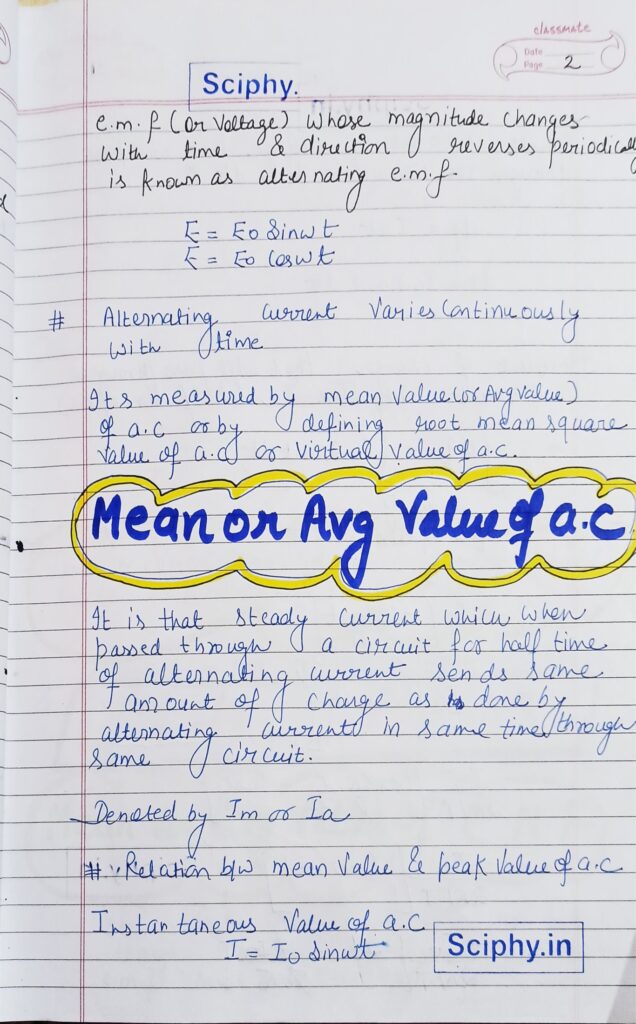 classmate
Date
Page 2
Sciphy.
e.m.f (or Voltage) whose magnitude changes
with time & direction reverses periodically
is known as alternating e.m.f.
E = E0 Sinωt
E = E0 Cosωt
# Alternating current varies Continuously
with time
Its measured by mean Value (or Avg value)
of a.c or by defining root mean square
value of a.c or virtual value of a.c.
Mean or Avg Value of a.c
It is that steady current which when
passed through a circuit for half time
of alternating current sends same
amount of charge as is done by
alternating current in same time through
same circuit.
Denoted by Im or Ia
# Relation b/w mean Value & peak Value of a.c
Instantaneous Value of a.c
I = I0 Sinωt
Sciphy.in